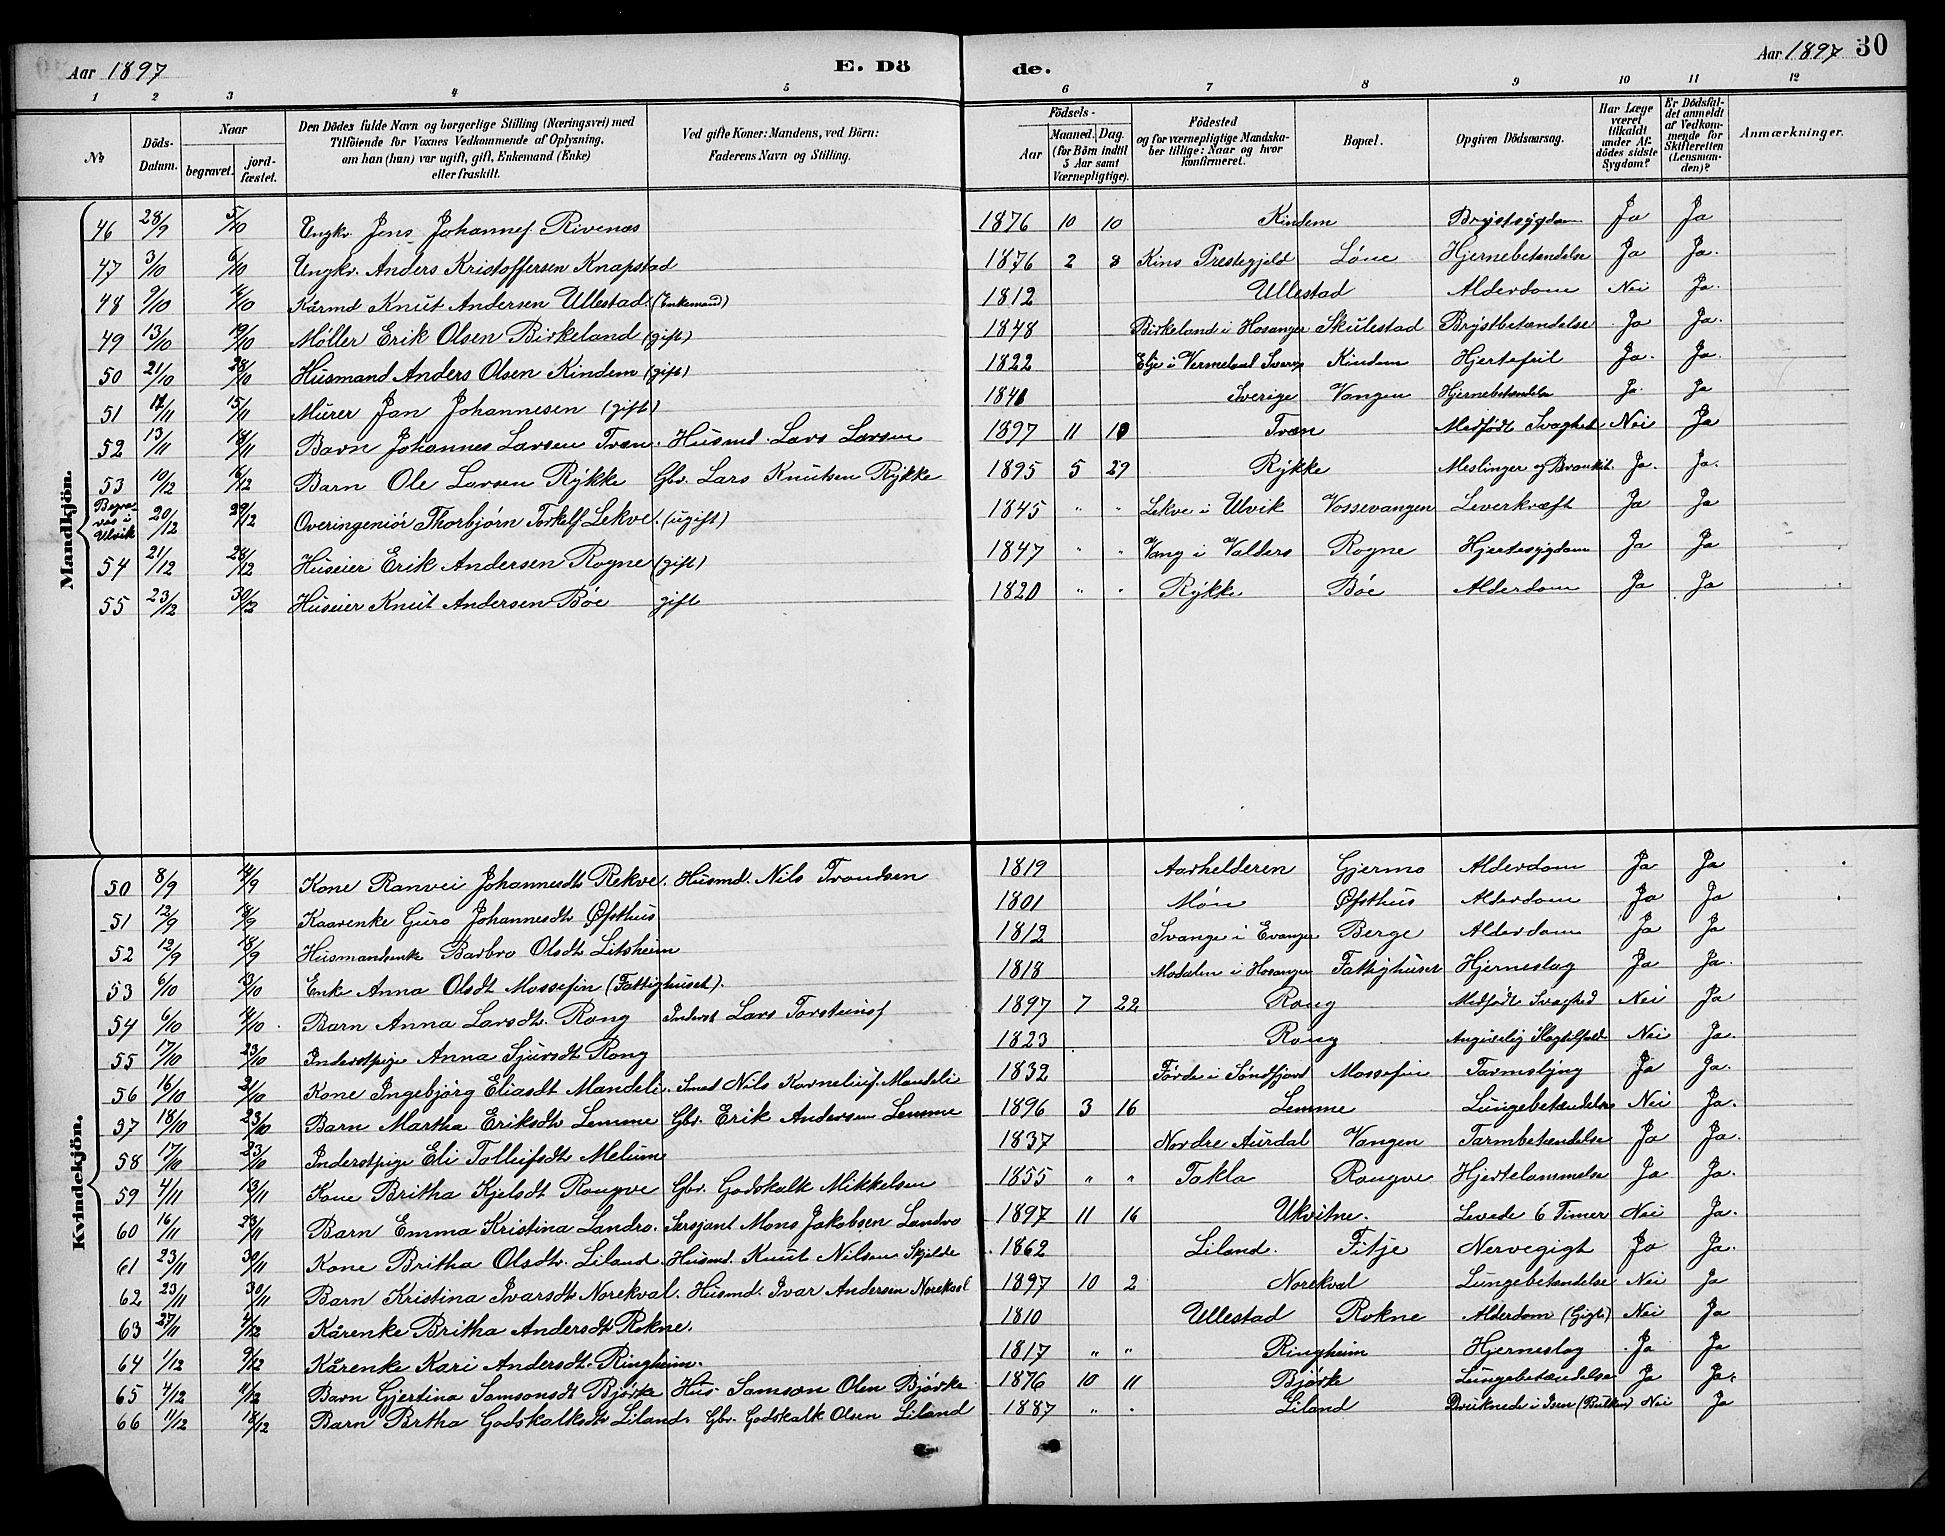 Aar 1897 E. Dö de. Aar 1897 30
1 2 3 4 5 6 7 8 9 10 11 12
No Döds-Datum. Naar begravet. jord-fæstet. Den Dödes fulde Navn og borgerlige Stilling (Næringsvei) med Tilföiende for Voxnes Vedkommende af Oplysning, om han (hun) var ugift, gift, Enkemand (Enke) eller fraskilt. Ved gifte Koner: Mandens, ved Börn: Faderens Navn og Stilling. Födsels- Aar Maaned. Dag. (for Börn indtil 5 Aar samt Værnepligtige). Födested og for værnepligtige Mandskaber tillige: Naar og hvor konfirmeret. Bopæl. Opgiven Dödsaarsag. Har Læge været tilkaldt under Afdödes sidste Sygdom? Er Dödsfaldet anmeldt af Vedkommende for Skifteretten (Lensmanden)? Anmærkninger.
Mandkjön.
46 28/9 5/10 Ungkr. Jens Johannes. Rivenæs 1876 10 10 Kindem Brystsygdom Ja Ja
47 3/10 6/10 Ungkr. Anders Kristoffersen Knapstad 1876 2 3 Kins Prestegjeld Løne Hjernebetændelse Ja Ja.
48 9/10 /10 Kårmd Knut Andersen Ullestad. (Enkemand) 1812 Ullestad Alderdom Nei Ja.
49 13/10 19/10 Møller Erik Olsen Birkeland (gift) 1848 Birkeland i Hosanger Skulestad Brystbetændelse Ja Ja.
50 21/10 28/10 Husmand Anders Olsen Kindem (gift) 1822 i Vermeland Kindem Hjertefeil Ja. Ja.
51 /11 15/11 Murer Jan Johannesen (gift) 1841 Sverige Vangen Hjernebetændelse Ja. Ja
52 13/11 18/11 Barn Johannes Larsen Træn. Husmd. Lars Larsen 1897 11 10 Træn Medfødt Svaghed Nei Ja
53 10/12 16/12 Barn Ole Larsen Rykke Gbr. Lars Knutsen Rykke 1895 5 29 Rykke Meslinger og Bronkit. Ja. Ja.
Begraves i Ulvik 20/12 29/12 Overingeniør Thorbjørn Torkelf Lekve. (ugift) 1845 " " Lekve i Ulvik Vossevangen Leverkræft Ja Ja
54 21/12 28/12 Huseier Erik Andersen Rogne (gift) 1847 " " Vang i Valders Rogne Hjertesygdom Ja Ja
55 23/12 30/12 Huseier Knut Andersen Bøe gift 1820 " " Rykke Bøe Alderdom Ja Ja
Kvindekjön.
50 8/9 14/9 Kone Ranvei Johannesdtr Rekve. Husmd. Nils Trondsen 1819 Aarhelderen Gjermo Alderdom Ja Ja
51 12/9 18/9 Kaarenke Guro Johannesdtr Øfsthus 1801 Møn Øfsthus Alderdom Ja Ja
52 12/9 18/9 Husmandsenke Barbro Olsdtr Litsheim 1812 Svange i Evanger Berge Alderdom Ja Ja
53 6/10 13/10 Enke Anna Olsdt Mossefin (Fattighuset). 1818 Modalen i Hosanger Fattighuset Hjerneslag Ja Ja.
54 6/10 14/10 Barn Anna Larsdtr. Rong Inderst Lars Torsteinsf 1897 7 22 Rong Medfødt Svaghed Nei Ja
55 17/10 23/10 Inderstpige Anna Sjursdtr Rong 1823 Rong Angivelig Slagtilfæld Nei Ja.
56 16/10 21/10 Kone Ingebjörg Eliasdt Mandeli. Smed Nils Korneliusf. Mandeli 1832 Førde i Søndfjord Mossefin Tarmslyng Ja Ja.
37 18/10 23/10 Barn Martha Eriksdtr Lemme Gbr. Erik Andersen Lemme 1896 3 16 Lemme Lungebetændelse Nei Ja.
58 17/10 23/10 Inderstpige Eli Tollefsdtr Melum 1837 Nordre Aurdal Vangen Tarmbetændelse Ja Ja.
59 4/11 13/11 Kone Britha Kjelsdt Rongve Gbr. Godskalk Mikkelsen 1855 " " Takla Rongve Hjertelammelse Ja Ja.
60 16/11 23/11 Barn Emma Kristina Landro. Sersjant Mons Jakobsen Landro 1897 11 16 Ukvitne. Levede 6 Timer Nei Ja.
61 23/11 30/11 Kone Britha Olsdtr. Liland. Husmd. Knut Nilsen Skjelde 1862 Liland. Fitje Nervegigt Ja Ja.
62 23/11 30/11 Barn Kristina Ivarsdtr Norekval. Husmd. Ivar Andersen Norekval 1897 10 2 Norekval Lungebetændelse Nei Ja
63 27/11 4/12 Kårenke Britha Andersdtr Rokne. 1810 Ullestad Rokne Alderdom (Gigt) Nei Ja
64 1/12 9/12 Kårenke Kari Andersdt. Ringheim. 1817 " " Ringheim Hjerneslag Ja Ja
65 4/12 11/12 Barn Gjertina Samsonsdt Bjørke Hus. Samson Olsen Bjørke 1876 10 11 Bjørke Lungebetændelse Ja Ja.
66 11/12 18/12 Barn Brtha Godskalksdtr Liland. Gbr. Godskalk Olsen Liland 1887 " " Liland Druknede i Isen (Bulken) Nei Ja